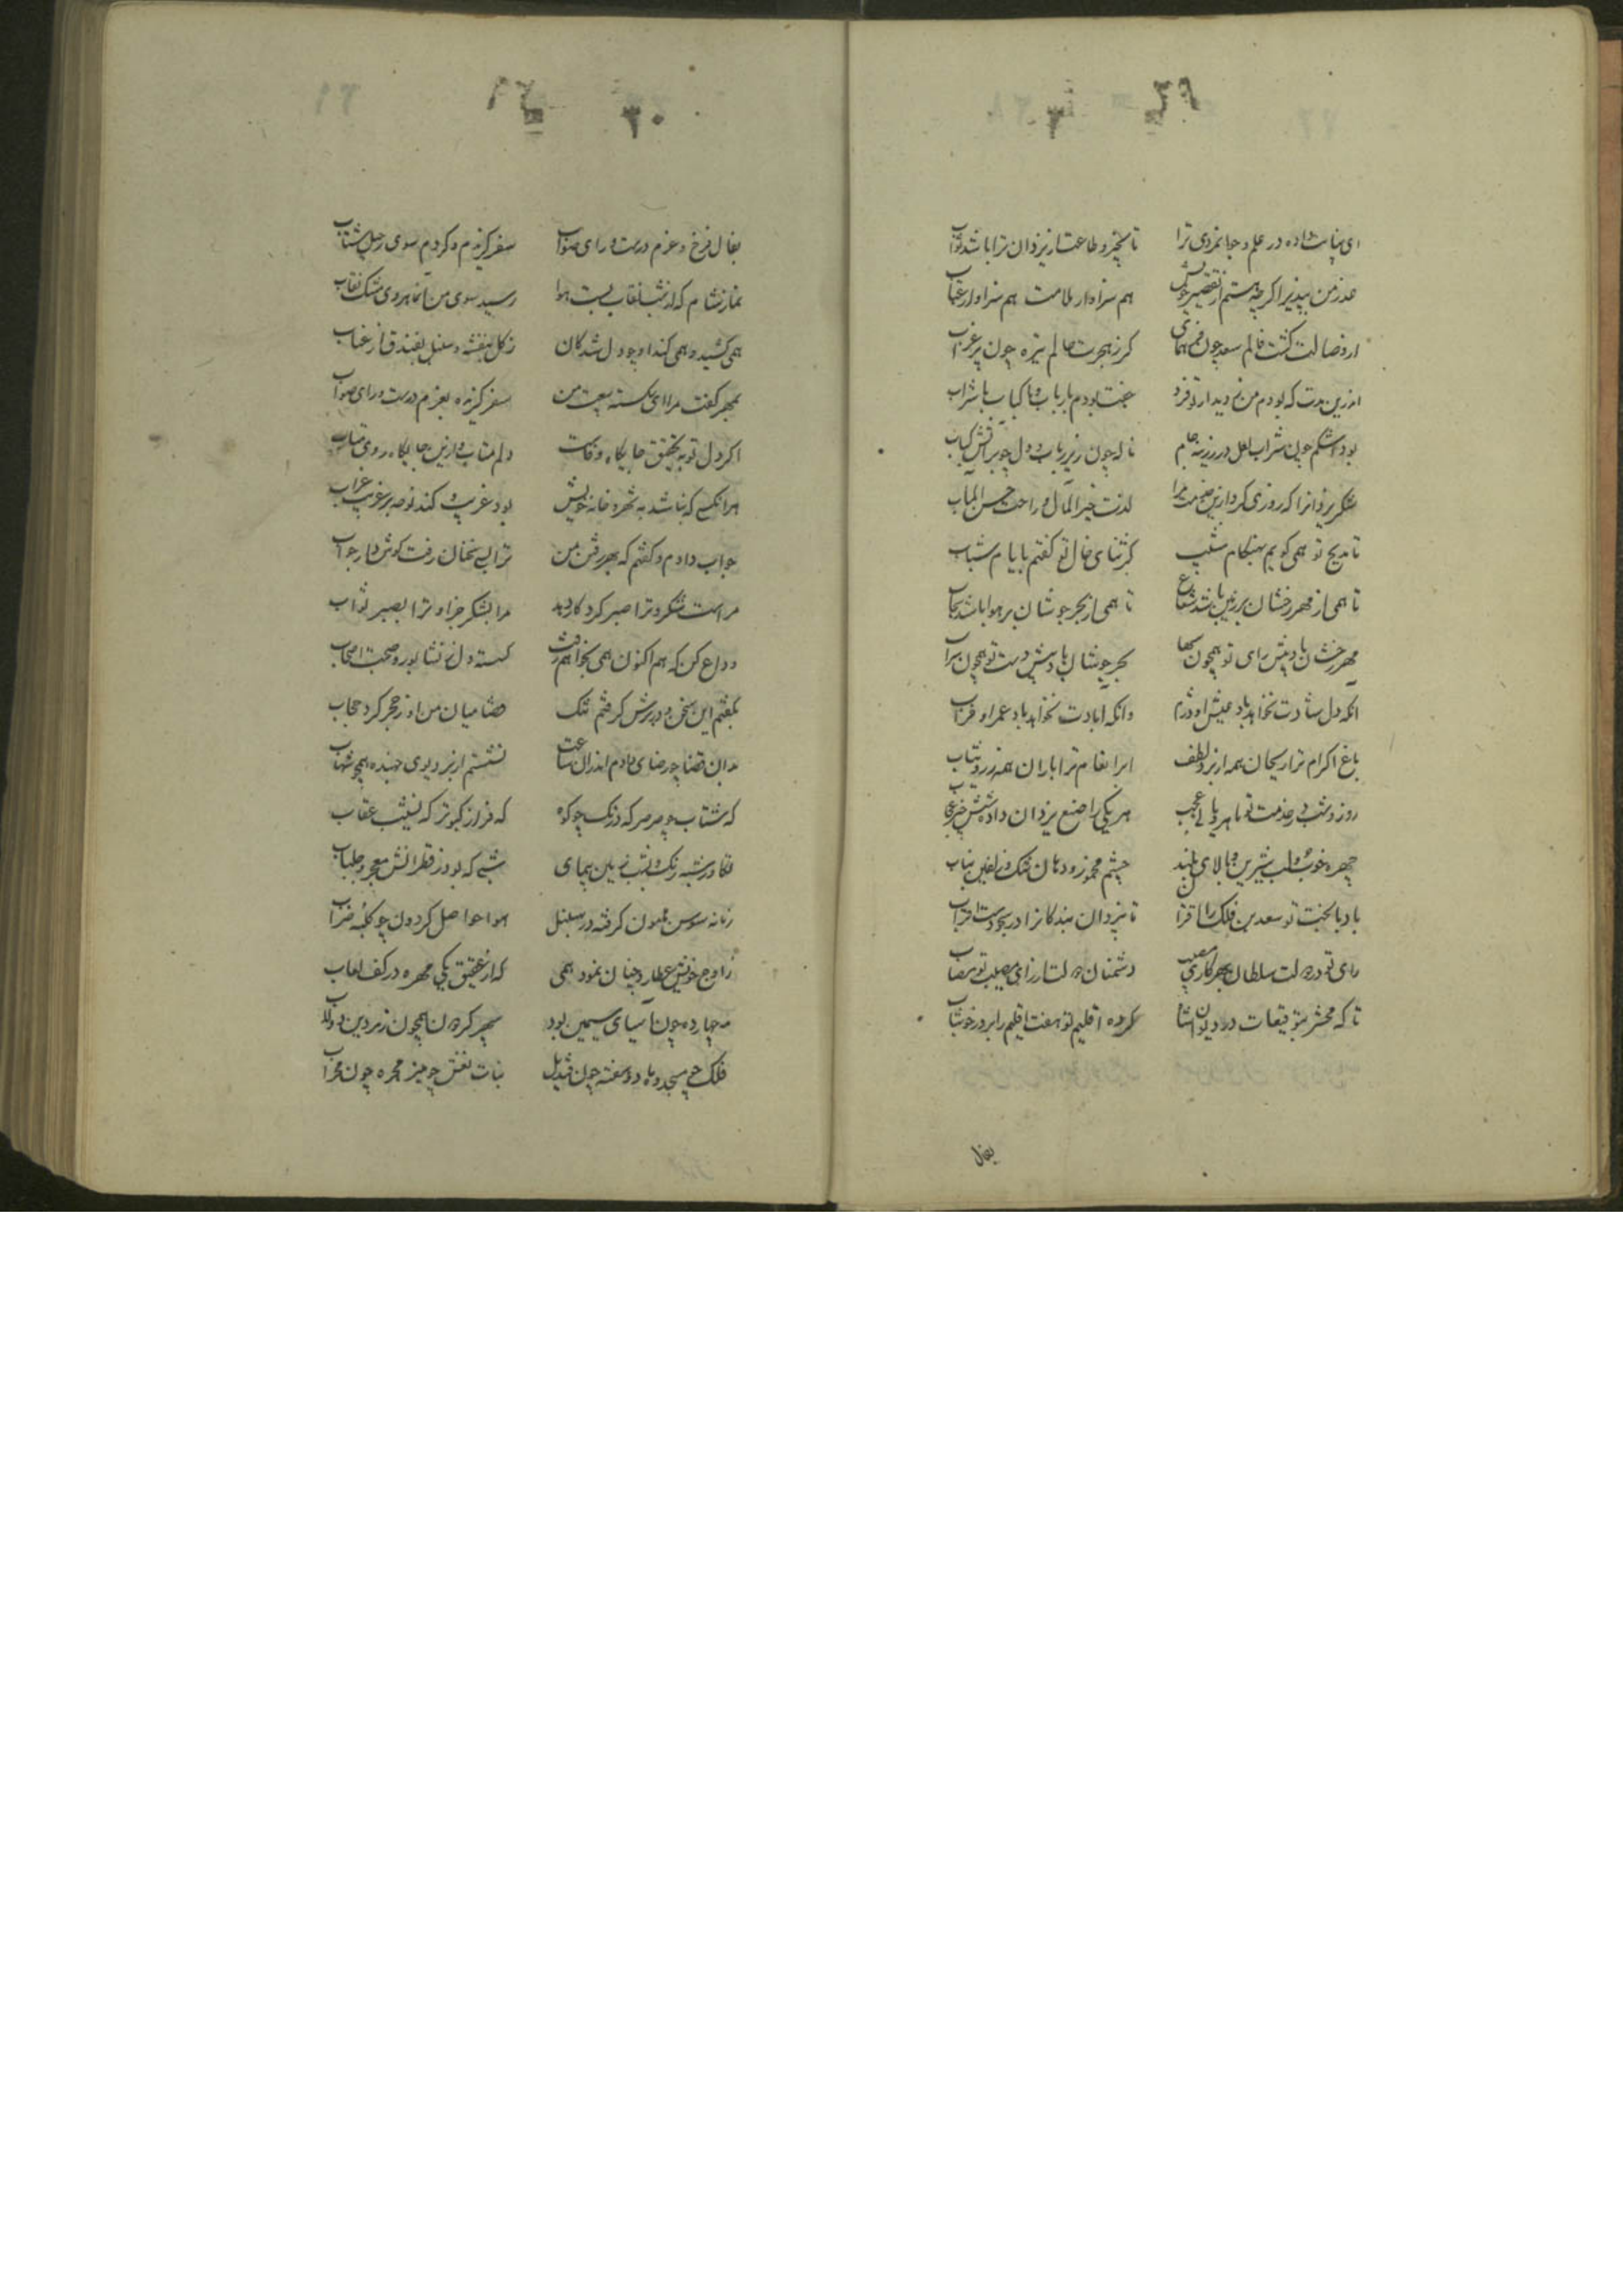 ۲۹
ای بنا نهاده در علم و جوانمردی ترا تا بخیر و طاعت از یزدان ترا باشد ثواب
عذر من بپذیر اکرچه هستم از تقصیر خویش هم سزاوار ملامت هم سزاوار عتاب
از وصالت کشت فالم سعد چون فر همای کر ز هجرت حالم تیره چون پر غراب
اندرین مدت که بودم من ز دیدار تو فرد جفت بودم با رباب و با کباب با شراب
بود اشکم چون شراب لعل در زرینه جام ناله چون زیر رباب و دل چو بر آتش کباب
شکر یزدانرا که روزی کرد ازین خدمت مرا لذت خیر المآل و راحت حسن المآب
تا مدیح تو همی کویم بهنکام مشیب کز ثنای خال تو کفتم بایام شباب
تا همی از مهر رخشان بر زمین باشد شعاع تا همی از بحر جوشان بر هوا باشد سحاب
مهر رخشان باد پیش رای تو همچون سها بحر جوشان باد پیش دست تو همچون سراب
آنکه دل شادت نخواهد باد عیش او دژم وانکه آبادت نخواهد باد عمر او خراب
باغ اکرام ترا ریحان همه از بر و لطف ابر انعام ترا باران همه زر و ثیاب
روز و شب در خدمت تو ماهرویانی عجب هر یکی را صنع یزدان داده شش چیز عجاب
چهره خوب و لب شیرین و بالای بلند چشم مخمور و دهان تنک و زلفین بتاب
باد با بخت تو سعدین فلک را قران تا یزدان بندکانرا در سجودست اقتراب
رای تو در دولت سلطان بهر کاری مصیب دشمنان دولت از رای مصیب تو مصاب
تا که محشر توقیعات در دیوان انشا کرده اقلیم تو هفت اقلیم را پر در خوشاب
بفال
۳۰
بفال فرخ و عزم درست و رای صواب سفر کزیدم و کردم سوی رحیل شتاب
نماز شام که از شب نقاب بست هوا رسید سوی من آن ماهروی مشک نقاب
همی کشید و همی کند او چو دلشدکان ز کل بنفشه و سنبل بفندق از عناب
بمهر کفت مرا ای شکسته بیعت من سفر کزیده بعزم درست و رای صواب
اکر دل تو بتحقیق جایکاه وفاست دلم متاب و ازین جایکاه روی متاب
هر آنکسی که نباشد بشهر و خانه خویش بود غریب و کند نوحه بر غریب غراب
جواب دادم و کفتم که بهر رفتن من ترا بسی سخنان رفت کوش دار جواب
مراست شکر و ترا صبر کردکار دهد مرا بشکر جزا و ترا بصبر ثواب
وداع کن که هم اکنون همی بخواهم رفت کسسته دل ز نشابور و صحبت اصحاب
بکفتم این سخن و در برش کرفتم تنک قضا میان من او ز هجر کرد حجاب
بدان قضا چو رضا دادم اندران ساعت نشستم از بر دیوی جهنده همچو شهاب
که شتاب چو صرصر که درنک چو کوه که فراز کبوتر که نشیب عقاب
تکاور شبه رنک و شب زمین پیمای شبی که بود ز قطرانش معجر و جلباب
زمانه سوسن میمون کرفته در سنبل هوا حواصل کردون چو کلبه ضراب
ز اوج خویش عطارد چنان نمود همی که از عقیق یکی مهره در کف لعاب
مه چهارده چون آسیای سیمین بود سپهر کردان همچون زبرجدین دولاب
فلک چو مسجد و ماه دو هفته چون قندیل بنات نعش چو منبر مجره چون محراب